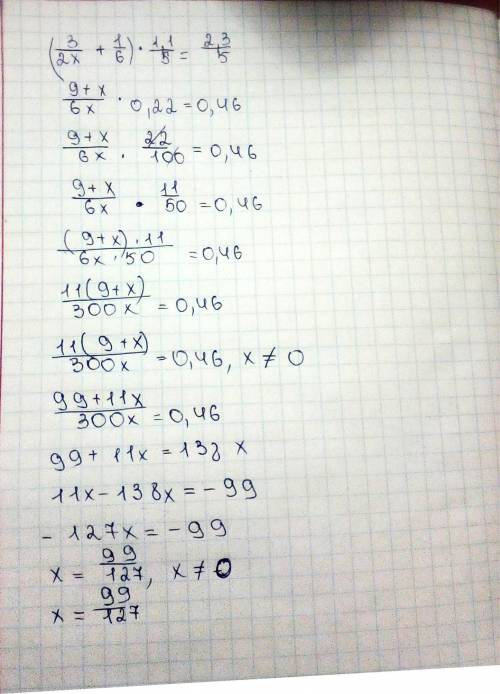 (3/2x + 1/6) · 1,1/5 = 2,3/5
9+x/6x · 0,22 = 0,46
9+x/6x · 22/100 = 0,46
9+x/6x · 11/50 = 0,46
(9+x)·11/6x·50 = 0,46
11(9+x)/300x = 0,46
11(9+x)/300x = 0,46, x ≠ 0
99+11x/300x = 0,46
99 + 11x = 138 x
11x - 138x = - 99
- 127x = - 99
x = 99/127, x ≠ 0
x = 99/127